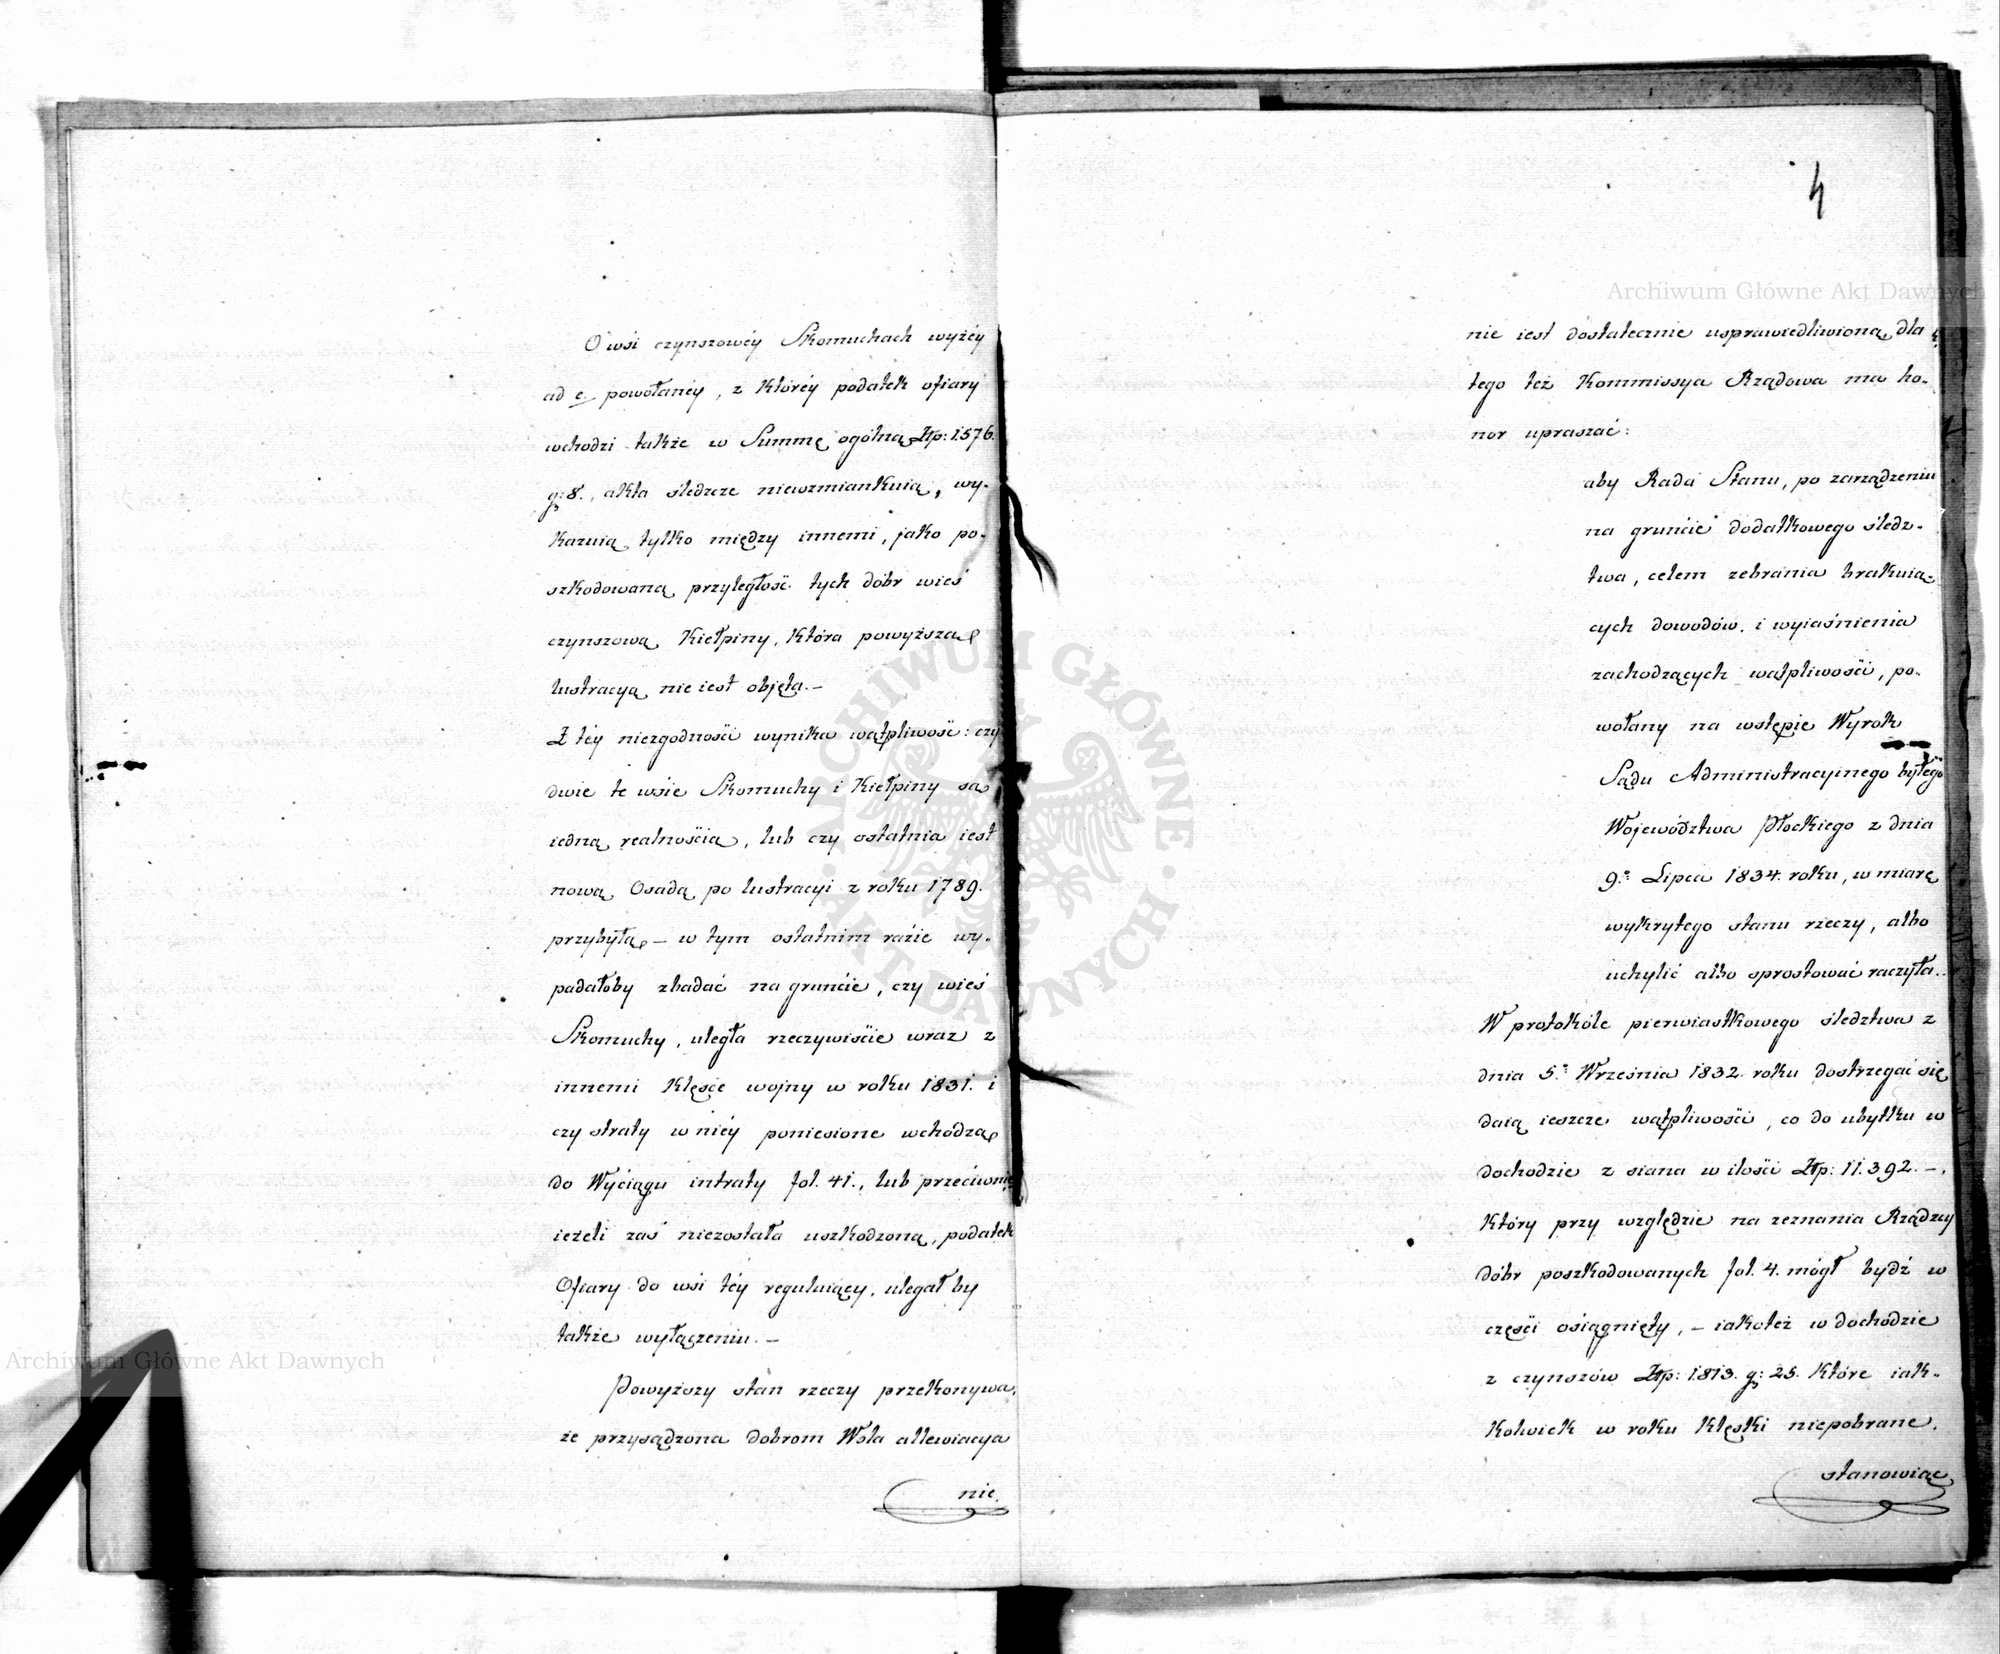 O wsi czynszowéy Skomuchach wyżéy
ad e. powołanéy, z któréy podatek ofiary
wchodzi także w Summę ogólną Złp: 1576.
g: 8., akta śledcze niewzmiankuią, wy-
kazuią tylko między innemi, jako po-
szkodowaną przyległość tych dóbr wieś
czynszową Kiełpiny, która powyższą
lustracyą nie iest objęta.—
Z téy niezgodności wynika wątpliwość: czy
dwie te wsie Skomuchy i Kiełpiny są
iedną realnością, lub czy ostatnia iest
nową Osadą po lustracyi z roku 1789.
przybyłą — w tym ostatnim razie wy-
padałoby zbadać na gruncie, czy wieś
Skomuchy, uległa rzeczywiście wraz z
innemi klęsce wojny w roku 1831. i
czy straty w niéy poniesione wchodzą
do Wyciągu intraty fol. 41., lub przeciwnie
ieżeli zaś niezostała uszkodzoną, podatek
Ofiary do wsi téy reguluiący, ulegał by
także wyłączeniu.—
Powyższy stan rzeczy przekonywa,
że przysądzona dobrom Wola allewiacya
nie
4
nie iest dostatecznie usprawiedliwioną, dla
tego też Kommissya Rządowa ma ho-
nor upraszać:
aby Rada Stanu, po zarządzeniu
na gruncie dodatkowego śledz-
twa, celem zebrania brakuią-
cych dowodów, i wyiaśnienia
zachodzących wątpliwości, po-
wołany na wstępie Wyrok
Sądu Administracyinego byłego
Województwa Płockiego z dnia
9. Lipca 1834. roku, w miarę
wykrytego stanu rzeczy, albo
uchylić albo sprostować raczyła.
W protokóle pierwiastkowego śledztwa z
dnia 5. Września 1832. roku dostrzegać się
daią ieszcze wątpliwości, co do ubytku w
dochodzie z siana w ilości Złp: 11.392.—,
który przy względzie na zeznania Rządzcy
dóbr poszkodowanych fol. 4. mógł bydź w
części osiągnięty,— iakoteż w dochodzie
z czynszów Złp: 1813. g: 25. które iak-
kolwiek w roku klęski niepobrane,
stanowiąc
Archiwum Główne Akt Dawnych
Archiwum Główne Akt Dawnych
ARCHIWUM GŁÓWNE
AKT DAWNYCH